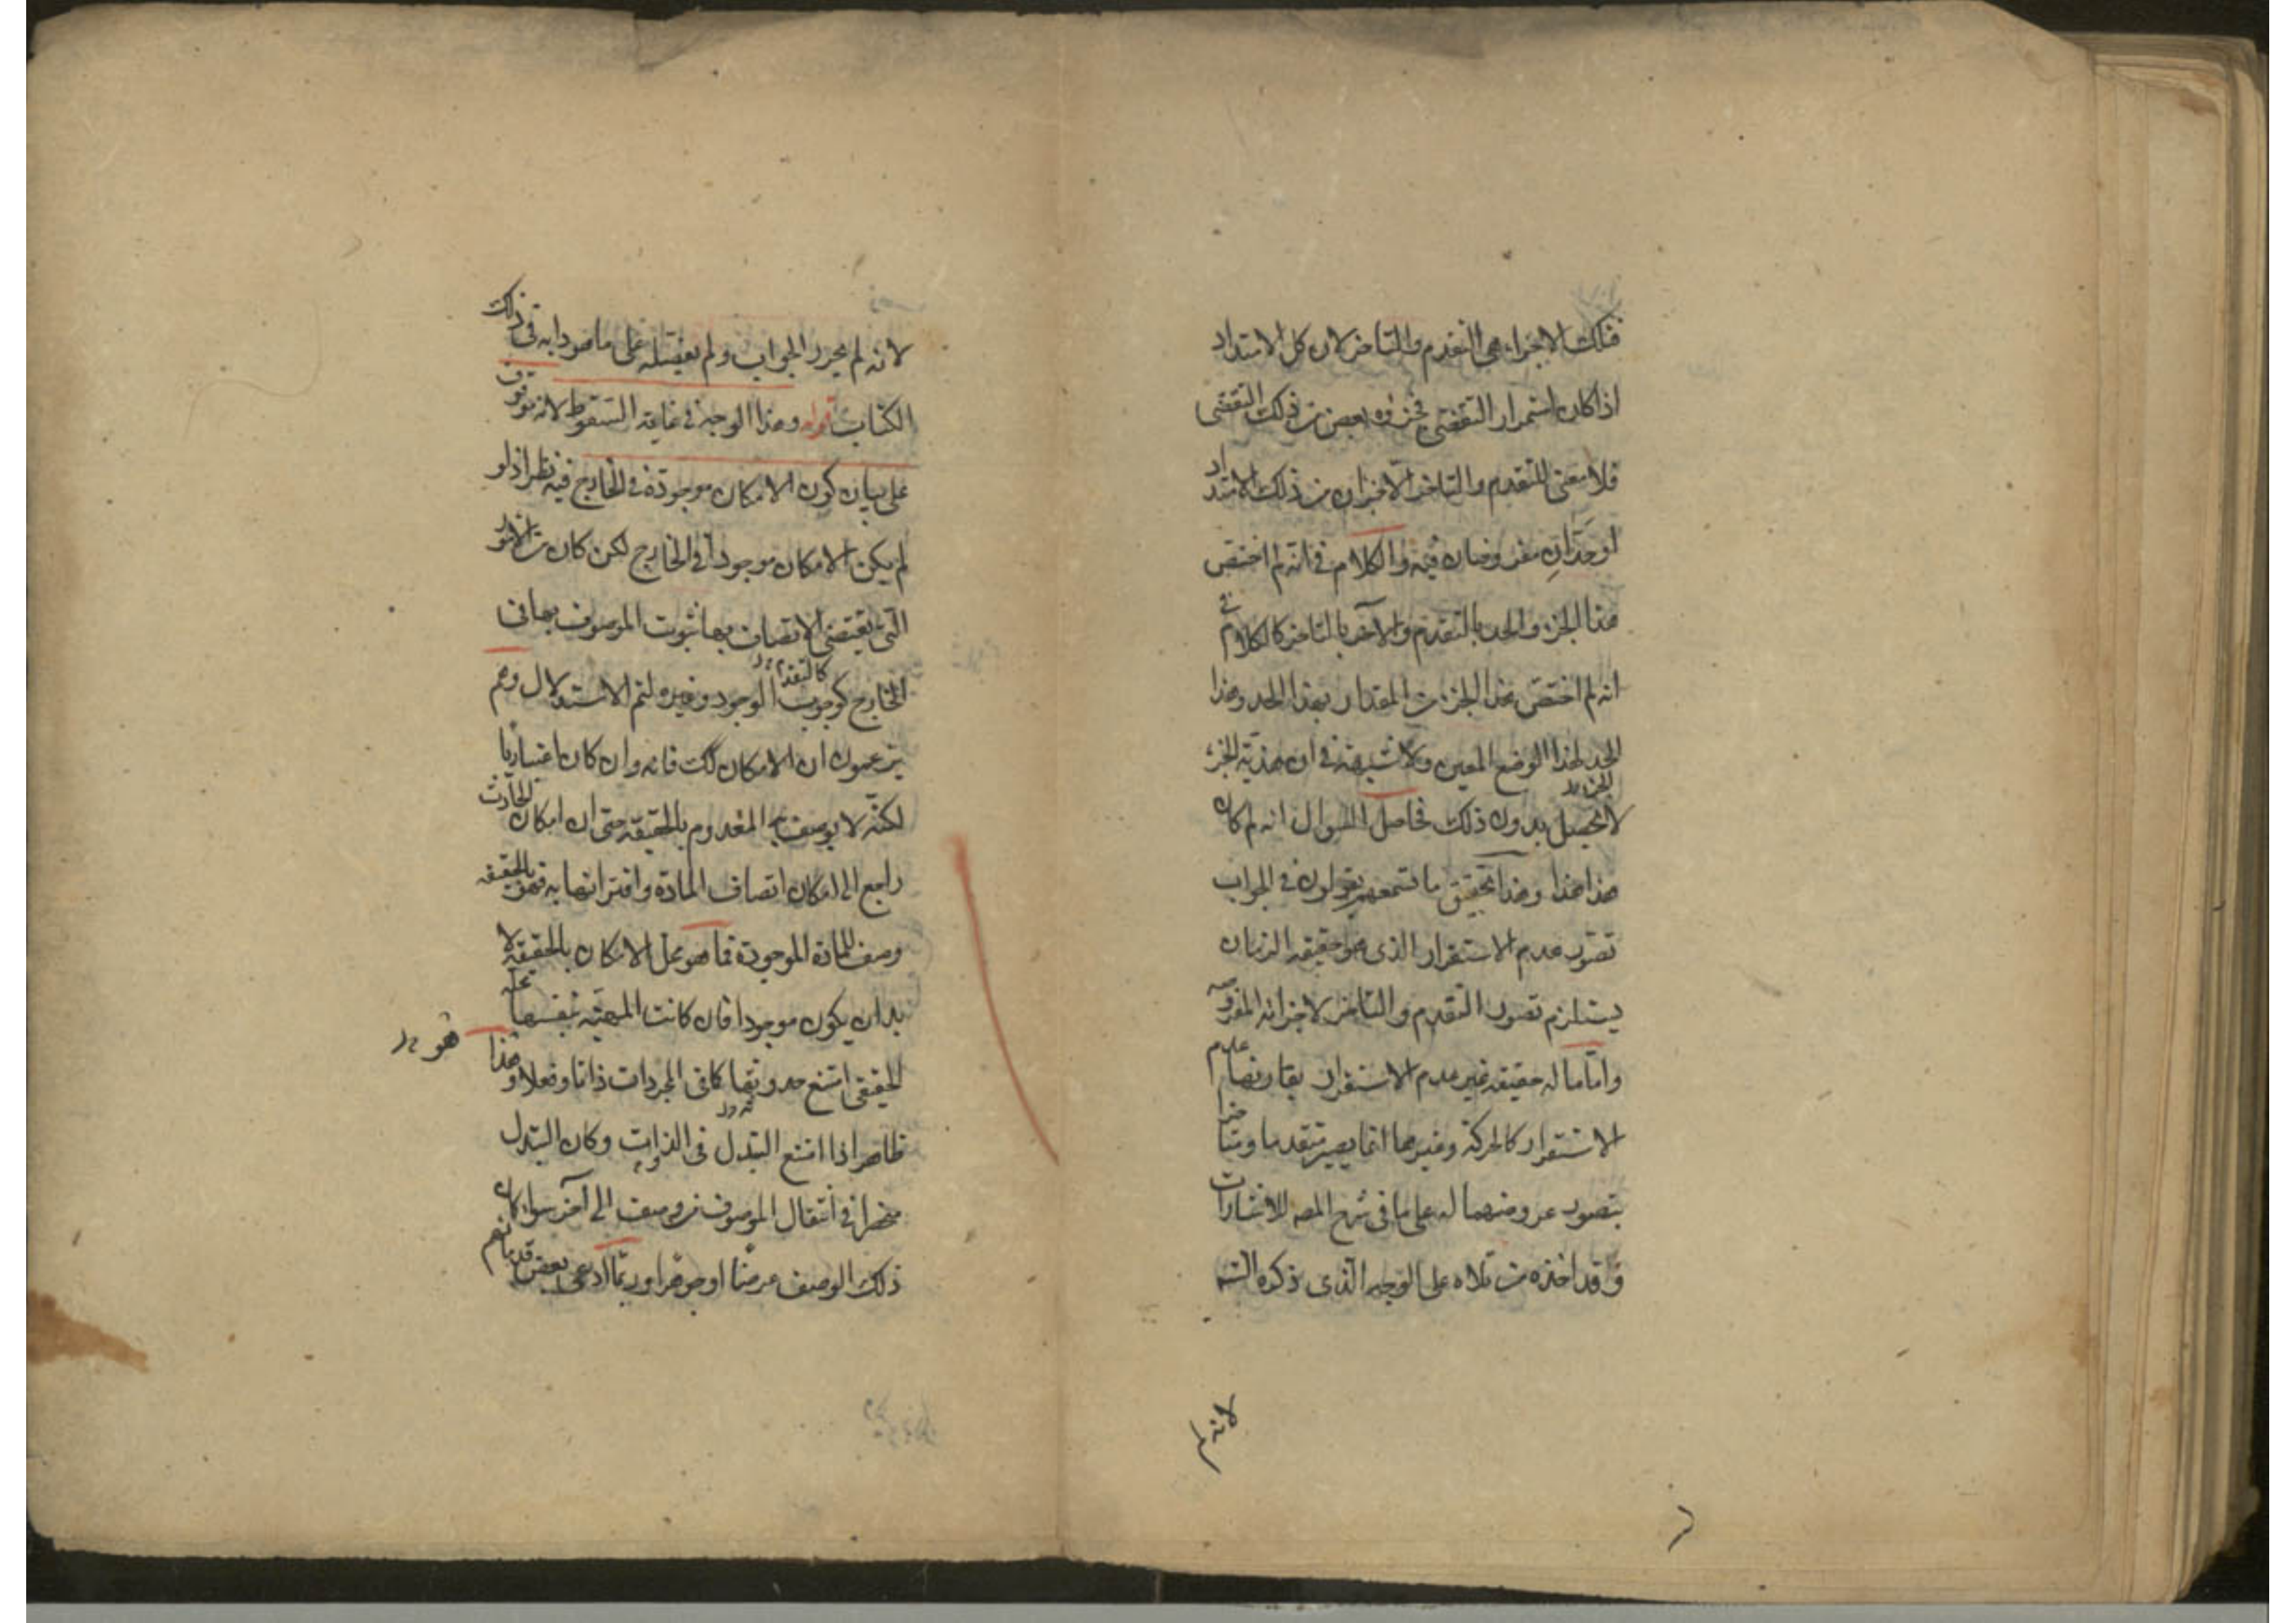 فتلك الاجزاء هى التقدم والتاخر لان كل الامتداد
اذا كان استمرار التقضى فجزؤه بعض من ذلك التقضى
فلا معنى للتقدم والتاخر الا جزان من ذلك الامتداد
او حدان مفروضان فيه والكلام فى انه لم اختص
هذا الجزء والحد بالتقدم والآخر بالتاخر كالكلام فى
انه لم اختص هذا الجزء من المقدار بهذا الحد وهذا
الحد لهذا الوضع المعين ولا شبهة فى ان هذية الجزء
لا تحصل بدون ذلك فحاصل السوال انه لم كان
هذا هذا وهذا تحقيق ما تسمعهم يقولون فى الجواب
تصور عدم الاستقرار الذى هو حقيقة الزمان
يستلزم تصور التقدم والتاخر لاجزائه المفروضة
واما ما له حقيقة غير عدم الاستقرار يقارنها عدم
الاستقرار كالحركة وغيرها انما يصير متقدما ومتاخرا
بتصور عروضهما له على ما فى شرح المص للاشارات
وقد اخذه من تلاه على الوجه الذى ذكره الشـ
لانه
لانه لم يحرر الجواب ولم يفصله على ما هو دابه فى ذلك
الكتاب قوله وهذا الوجه فى غاية السقوط لانه توقف
على بيان كون الامكان موجودة فى الخارج فيه نظر اذ لو
لم يكن الامكان موجودا فى الخارج لكن كان من الامور
التى يقتضى الاتصاف بها ثبوت الموصوف بها فى
الخارج كوجوب الوجود وغيره لتم الاستدلال وهم
كالتقدم
يزعمون ان الامكان كك فانه وان كان اعتباريا
لكنه لا يوصف به المعدوم بالحقيقة حتى ان امكان الحادث
راجع الى امكان اتصاف المادة واقترانها به فهو بالحقيقة
وصف للمادة الموجودة فما هو محل الامكان بالحقيقة لا
بد ان يكون موجودا فان كانت المهية بنفسها محله
الحقيقى امتنع حدوثها كما فى المجردات ذاتا وفعلا وهذا
فهو
ظاهر اذا امتنع التبدل فى الذوات وكان التبدل
منحصرا فى انتقال الموصوف من وصف الى آخر سواء كان
ذلك الوصف عرضا او جوهرا وربما ادعى بعض قدمائهم